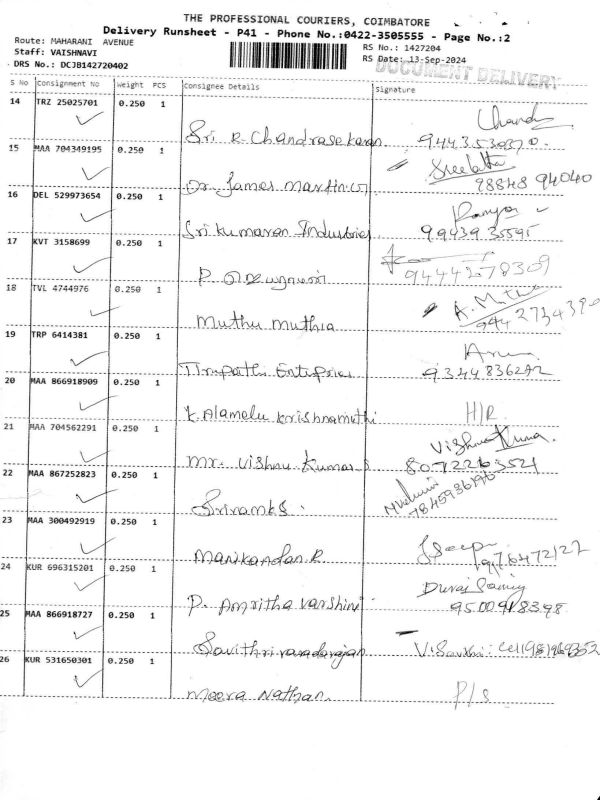 THE PROFESSIONAL COURIERS, COIMBATORE
Delivery Runsheet - P41 - Phone No.:0422-3505555 - Page No.:2
Route: MAHARANI AVENUE
RS No.: 1427204
Staff: VAISHNAVI
RS Date: 13-Sep-2024
DRS No.: DCJB142720402
DOCUMENT DELIVERY
S No Consignment No Weight PCS Consignee Details Signature
14 TRZ 25025701 0.250 1
Sri R. Chandrasekaran
15 MAA 704349195 0.250 1
Dr. James Martin
98848 94040
16 DEL 529973654 0.250 1
Sri Kumaran Industries
Ramya
99439 35595
17 KVT 3158699 0.250 1
P
9444278309
18 TVL 4744976 0.250 1
Muthu Muthia
A. Muthu
19 TRP 6414381 0.250 1
Tirupathi Enterprises
9344836292
20 MAA 866918909 0.250 1
K. Alamelu Krishnamuthi
H/R
21 MAA 704562291 0.250 1
Mr. Vishnu Kumar
Vishnu Kumar
8072263521
22 MAA 867252823 0.250 1
Sriram
7845936196
23 MAA 300492919 0.250 1
Manikandan R
24 KUR 696315201 0.250 1
P. Amritha Varshini
Durai Samy
9500918398
25 MAA 866918727 0.250 1
Savithri varadarajan
26 KUR 531650301 0.250 1
Meera Nathan
P/S